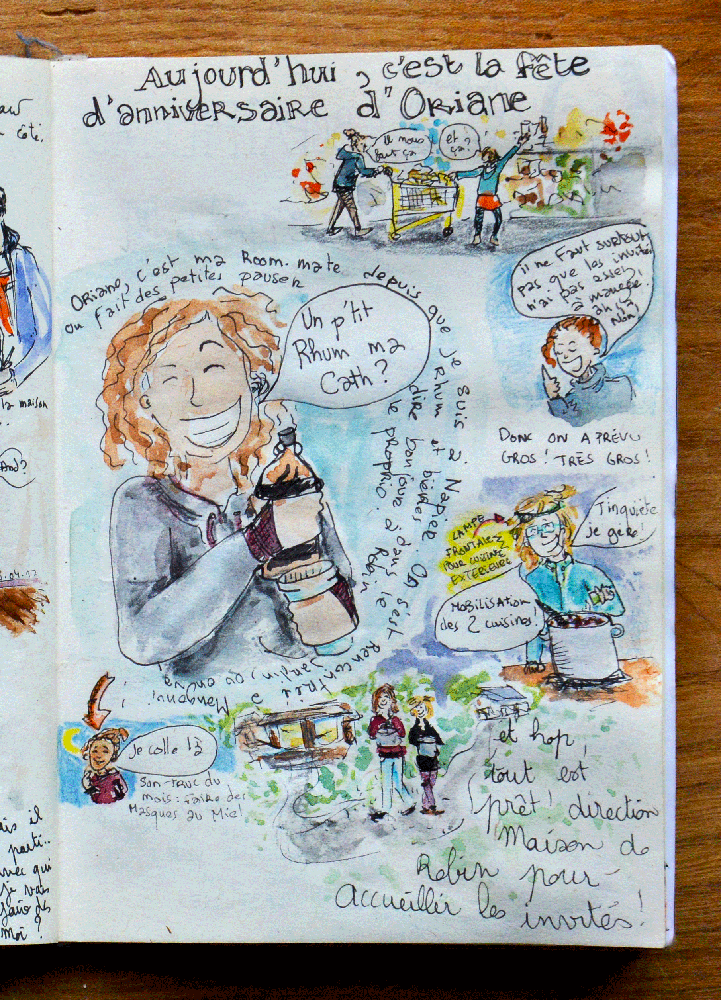 Aujourd'hui, c'est la fête
d'anniversaire d'Oriane
il nous
faut ça
et ça ?
Oriane, c'est ma Room-mate depuis que je suis à Napier. On s'est rencontré
ou fait des petites pauses
Rhum et bières
dire bonjour à Robin
le proprio.
dans le
Jardin, ou on va
Manguoni
Un p'tit
Rhum ma
Cath ?
il ne faut surtout
pas que les invités
n'ai pas assez
à manger.
ah ça
Non !
Donc on a prévu
GROS ! TRÈS GROS !
LAMPE
FRONTALE
POUR CUISINE
EXTERIEURE
T'inquiète
je gère !
Mobilisation
des 2 cuisines.
Je colle !
Son truc du
mois : faire des
Masques au Miel
et hop,
tout est
prêt ! direction
Maison de
Robin pour
accueillir les invités !
côté.
la maison
And ?
04.17
is il
parti..
avec qui
je vais
faire des
moi ?